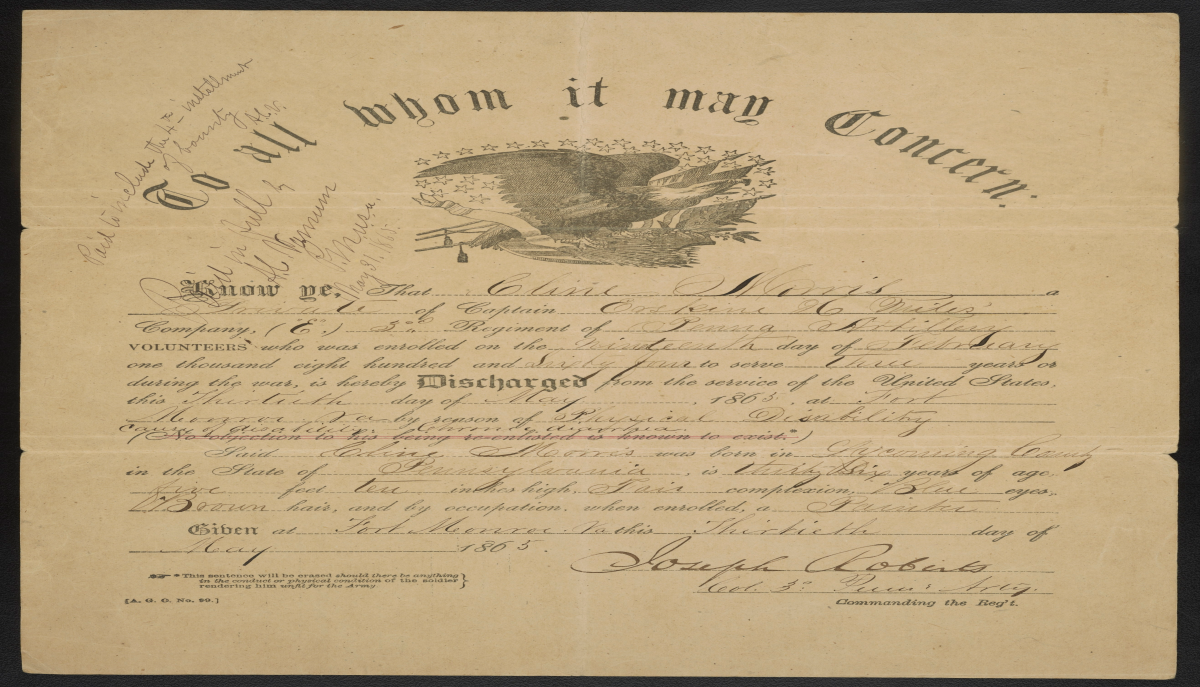 To all whom it may Concern.
Paid to include the 4th installment
of bounty
Paid in full by
May 31, 1865.
Know ye, That Cline Morris a
Private of Captain Erskine H. Miles'
Company, ("E",) 3rd Regiment of Penna Artillery
VOLUNTEERS who was enrolled on the Nineteenth day of February
one thousand eight hundred and Sixty four to serve Three years or
during the war, is hereby Discharged from the service of the United States,
this Thirtieth day of May, 1865, at Fort
Monroe Va by reason of Physical Disability
cause of disability, Chronic diarrhea
(No objection to his being re-enlisted is known to exist.*)
Said Cline Morris was born in Lycoming County
in the State of Pennsylvania, is thirty six years of age,
five feet ten inches high, Fair complexion, Blue eyes,
Brown hair, and by occupation, when enrolled, a Painter
Given at Fort Monroe Va this Thirtieth day of
May 1865.
Joseph Roberts
Col. 3d Penn: Arty.
Commanding the Reg't.
*This sentence will be erased should there be anything
in the conduct or physical condition of the soldier
rendering him unfit for the Army.
[A. G. O. No. 99.]